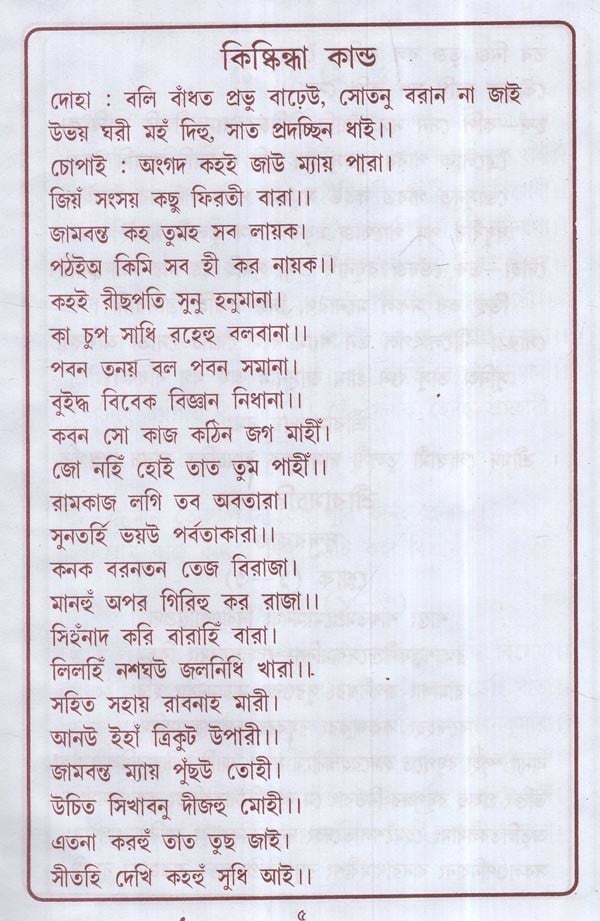 কিষ্কিন্ধা কান্ড
দোহা : বলি বাঁধত প্রভু বাঢ়েউ, সোতনু বরান না জাই
উভয় ঘরী মহঁ দিহু, সাত প্রদচ্ছিন ধাই।।
চোপাই : অংগদ কহই জাউ ম্যায় পারা।
জিয়ঁ সংসয় কছু ফিরতী বারা।।
জামবন্ত কহ তুমহ সব লায়ক।
পঠইঅ কিমি সব হী কর নায়ক।।
কহই রীছপতি সুনু হনুমানা।
কা চুপ সাধি রহেহু বলবানা।।
পবন তনয় বল পবন সমানা।
বুইদ্ধ বিবেক বিজ্ঞান নিধানা।।
কবন সো কাজ কঠিন জগ মাহীঁ।
জো নহিঁ হোই তাত তুম পাহীঁ।।
রামকাজ লগি তব অবতারা।
সুনতর্হি ভয়উ পর্বতাকারা।।
কনক বরনতন তেজ বিরাজা।
মানহুঁ অপর গিরিহু কর রাজা।।
সিহঁনাদ করি বারাহিঁ বারা।
লিলহিঁ নশঘউ জলনিধি খারা।।
সহিত সহায় রাবনাহ মারী।
আনউ ইহাঁ ত্রিকুট উপারী।।
জামবন্ত ম্যায় পুঁছউ তোহী।
উচিত সিখাবনু দীজহু মোহী।।
এতনা করহুঁ তাত তুছ জাই।
সীতহি দেখি কহহুঁ সুধি আই।।
৫